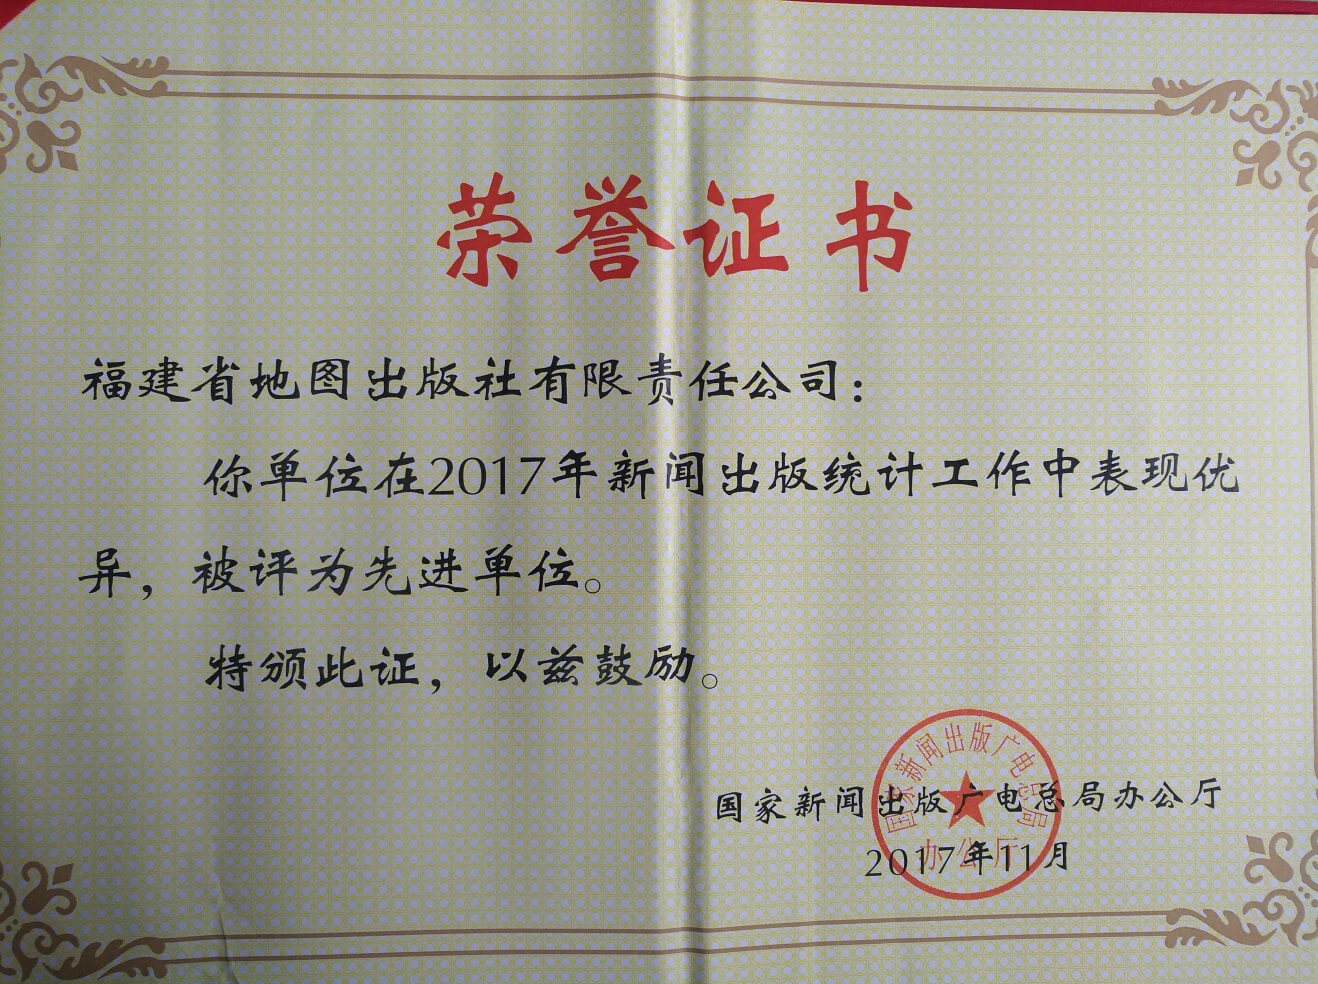 荣誉证书
福建省地图出版社有限责任公司：
你单位在2017年新闻出版统计工作中表现优
异，被评为先进单位。
特颁此证，以兹鼓励。
国家新闻出版广电总局办公厅
2017年11月
国家新闻出版广电总局
办公厅